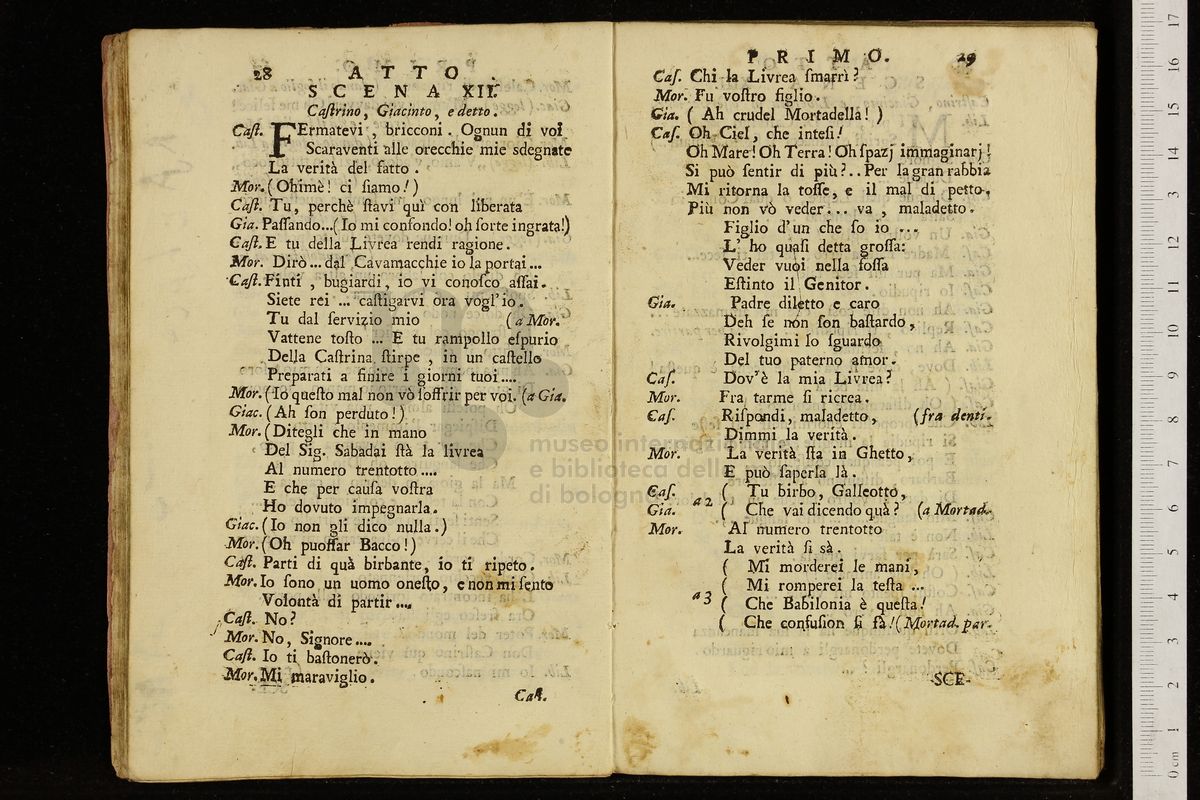 28 ATTO
SCENA XII.
Caſtrino, Giacinto, e detto.
Caſt. FErmatevi, bricconi. Ognun di voi
Scaraventi alle orecchie mie sdegnate
La verità del fatto.
Mor. (Ohimè! ci ſiamo!)
Caſt. Tu, perchè ſtavi quì con liberata
Gia. Paſſando...(Io mi confondo! oh ſorte ingrata!)
Caſt. E tu della Livrea rendi ragione.
Mor. Dirò... dal Cavamacchie io la portai...
Caſt. Finti, bugiardi, io vi conoſco aſſai.
Siete rei ... caſtigarvi ora vogl'io.
Tu dal ſervizio mio (a Mor.
Vattene toſto ... E tu rampollo eſpurio
Della Caſtrina ſtirpe, in un caſtello
Preparati a finire i giorni tuoi....
Mor. (Io queſto mal non vò ſoffrir per voi. (a Gia.
Giac. (Ah ſon perduto!)
Mor. (Ditegli che in mano
Del Sig. Sabadai ſtà la livrea
Al numero trentotto....
E che per cauſa voſtra
Ho dovuto impegnarla.
Giac. (Io non gli dico nulla.)
Mor. (Oh puoſſar Bacco!)
Caſt. Parti di quà birbante, io ti ripeto.
Mor. Io ſono un uomo oneſto, e non mi ſento
Volontà di partir....
Caſt. No?
Mor. No, Signore....
Caſt. Io ti baſtonerò.
Mor. Mi maraviglio.
Caſt.
PRIMO. 29
Caſ. Chi la Livrea ſmarrì?
Mor. Fu voſtro figlio.
Gia. (Ah crudel Mortadella!)
Caſ. Oh Ciel, che inteſi!
Oh Mare! Oh Terra! Oh ſpazj immaginarj!
Si può ſentir di più?.. Per la gran rabbia
Mi ritorna la toſſe, e il mal di petto.
Più non vò veder... va, maladetto.
Figlio d'un che ſo io ...
L' ho quaſi detta groſſa:
Veder vuoi nella foſſa
Eſtinto il Genitor.
Gia. Padre diletto e caro
Deh ſe non ſon baſtardo,
Rivolgimi lo ſguardo
Del tuo paterno amor.
Caſ. Dov'è la mia Livrea?
Mor. Fra tarme ſi ricrea.
Caſ. Riſpondi, maladetto, (fra denti.
Dimmi la verità.
Mor. La verità ſta in Ghetto,
E può ſaperla là.
Caſ. a 2 ( Tu birbo, Galeotto,
Gia. ( Che vai dicendo quà? (a Mortad.
Mor. Al numero trentotto
La verità ſi sà.
( Mi morderei le mani,
( Mi romperei la teſta ...
a 3 ( Che Babilonia è queſta!
( Che confuſion ſi fà! (Mortad. par.
SCE-
museo internaz
e biblioteca della
di bologna